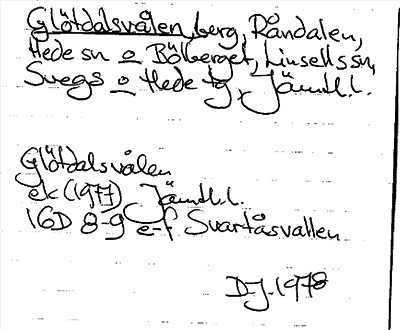 Glötdalsvålen, berg, Råndalen,
Hede sn o Bölberget, Linsells sn,
Svegs o Hede tg, Jämtl.l.
Glötdalsvålen
ek (1977) Jämtl.l.
16D 8-9 e-f Svartåsvallen
D-J. 1978